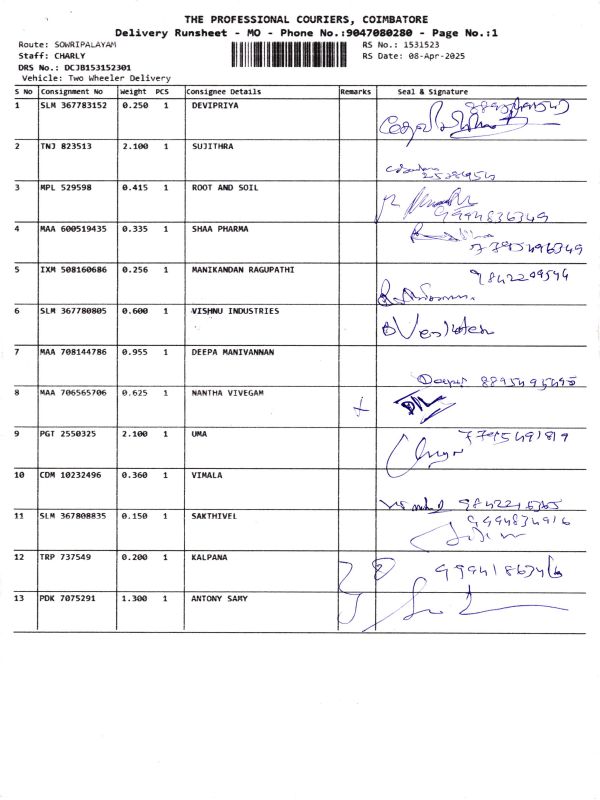 THE PROFESSIONAL COURIERS, COIMBATORE
Delivery Runsheet - MO - Phone No.:9047080280 - Page No.:1
Route: SOWRIPALAYAM RS No.: 1531523
Staff: CHARLY RS Date: 08-Apr-2025
DRS No.: DCJB153152301
Vehicle: Two Wheeler Delivery
S No Consignment No Weight PCS Consignee Details Remarks Seal & Signature
1 SLM 367783152 0.250 1 DEVIPRIYA
2 TNJ 823513 2.100 1 SUJITHRA
3 MPL 529598 0.415 1 ROOT AND SOIL
9994836349
4 MAA 600519435 0.335 1 SHAA PHARMA
7795496349
5 IXM 508160686 0.256 1 MANIKANDAN RAGUPATHI
9842209544
6 SLM 367780805 0.600 1 VISHNU INDUSTRIES
Venkatesh
7 MAA 708144786 0.955 1 DEEPA MANIVANNAN
Deepa
8 MAA 706565706 0.625 1 NANTHA VIVEGAM
9 PGT 2550325 2.100 1 UMA
10 CDM 10232496 0.360 1 VIMALA
11 SLM 367808835 0.150 1 SAKTHIVEL
9994834916
12 TRP 737549 0.200 1 KALPANA
9994186346
13 PDK 7075291 1.300 1 ANTONY SAMY